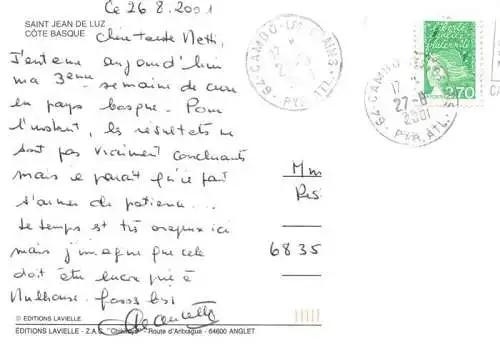 Ce 26.8.2001
SAINT JEAN DE LUZ
CÔTE BASQUE
Chère tante Netti,
J'entame aujourd'hui
ma 3ème semaine de cure
en pays basque. Pour
l'instant, les résultats ne
sont pas vraiment concluants
mais il paraît qu'il faut
s'armer de patience...
Le temps est très orageux ici
mais j'imagine que cela
doit être encore pire à
Mulhouse. Gross bsi
© EDITIONS LAVIELLE
EDITIONS LAVIELLE - Z.A.C. - Route d'Arbague - 64600 ANGLET
64 CAMBO-LES-BAINS
PYR. ATL.
64 CAMBO
17
27-8
2001
PYR. ATL.
Liberté
égalité
fraternité
2,70
Mm
Res
6835